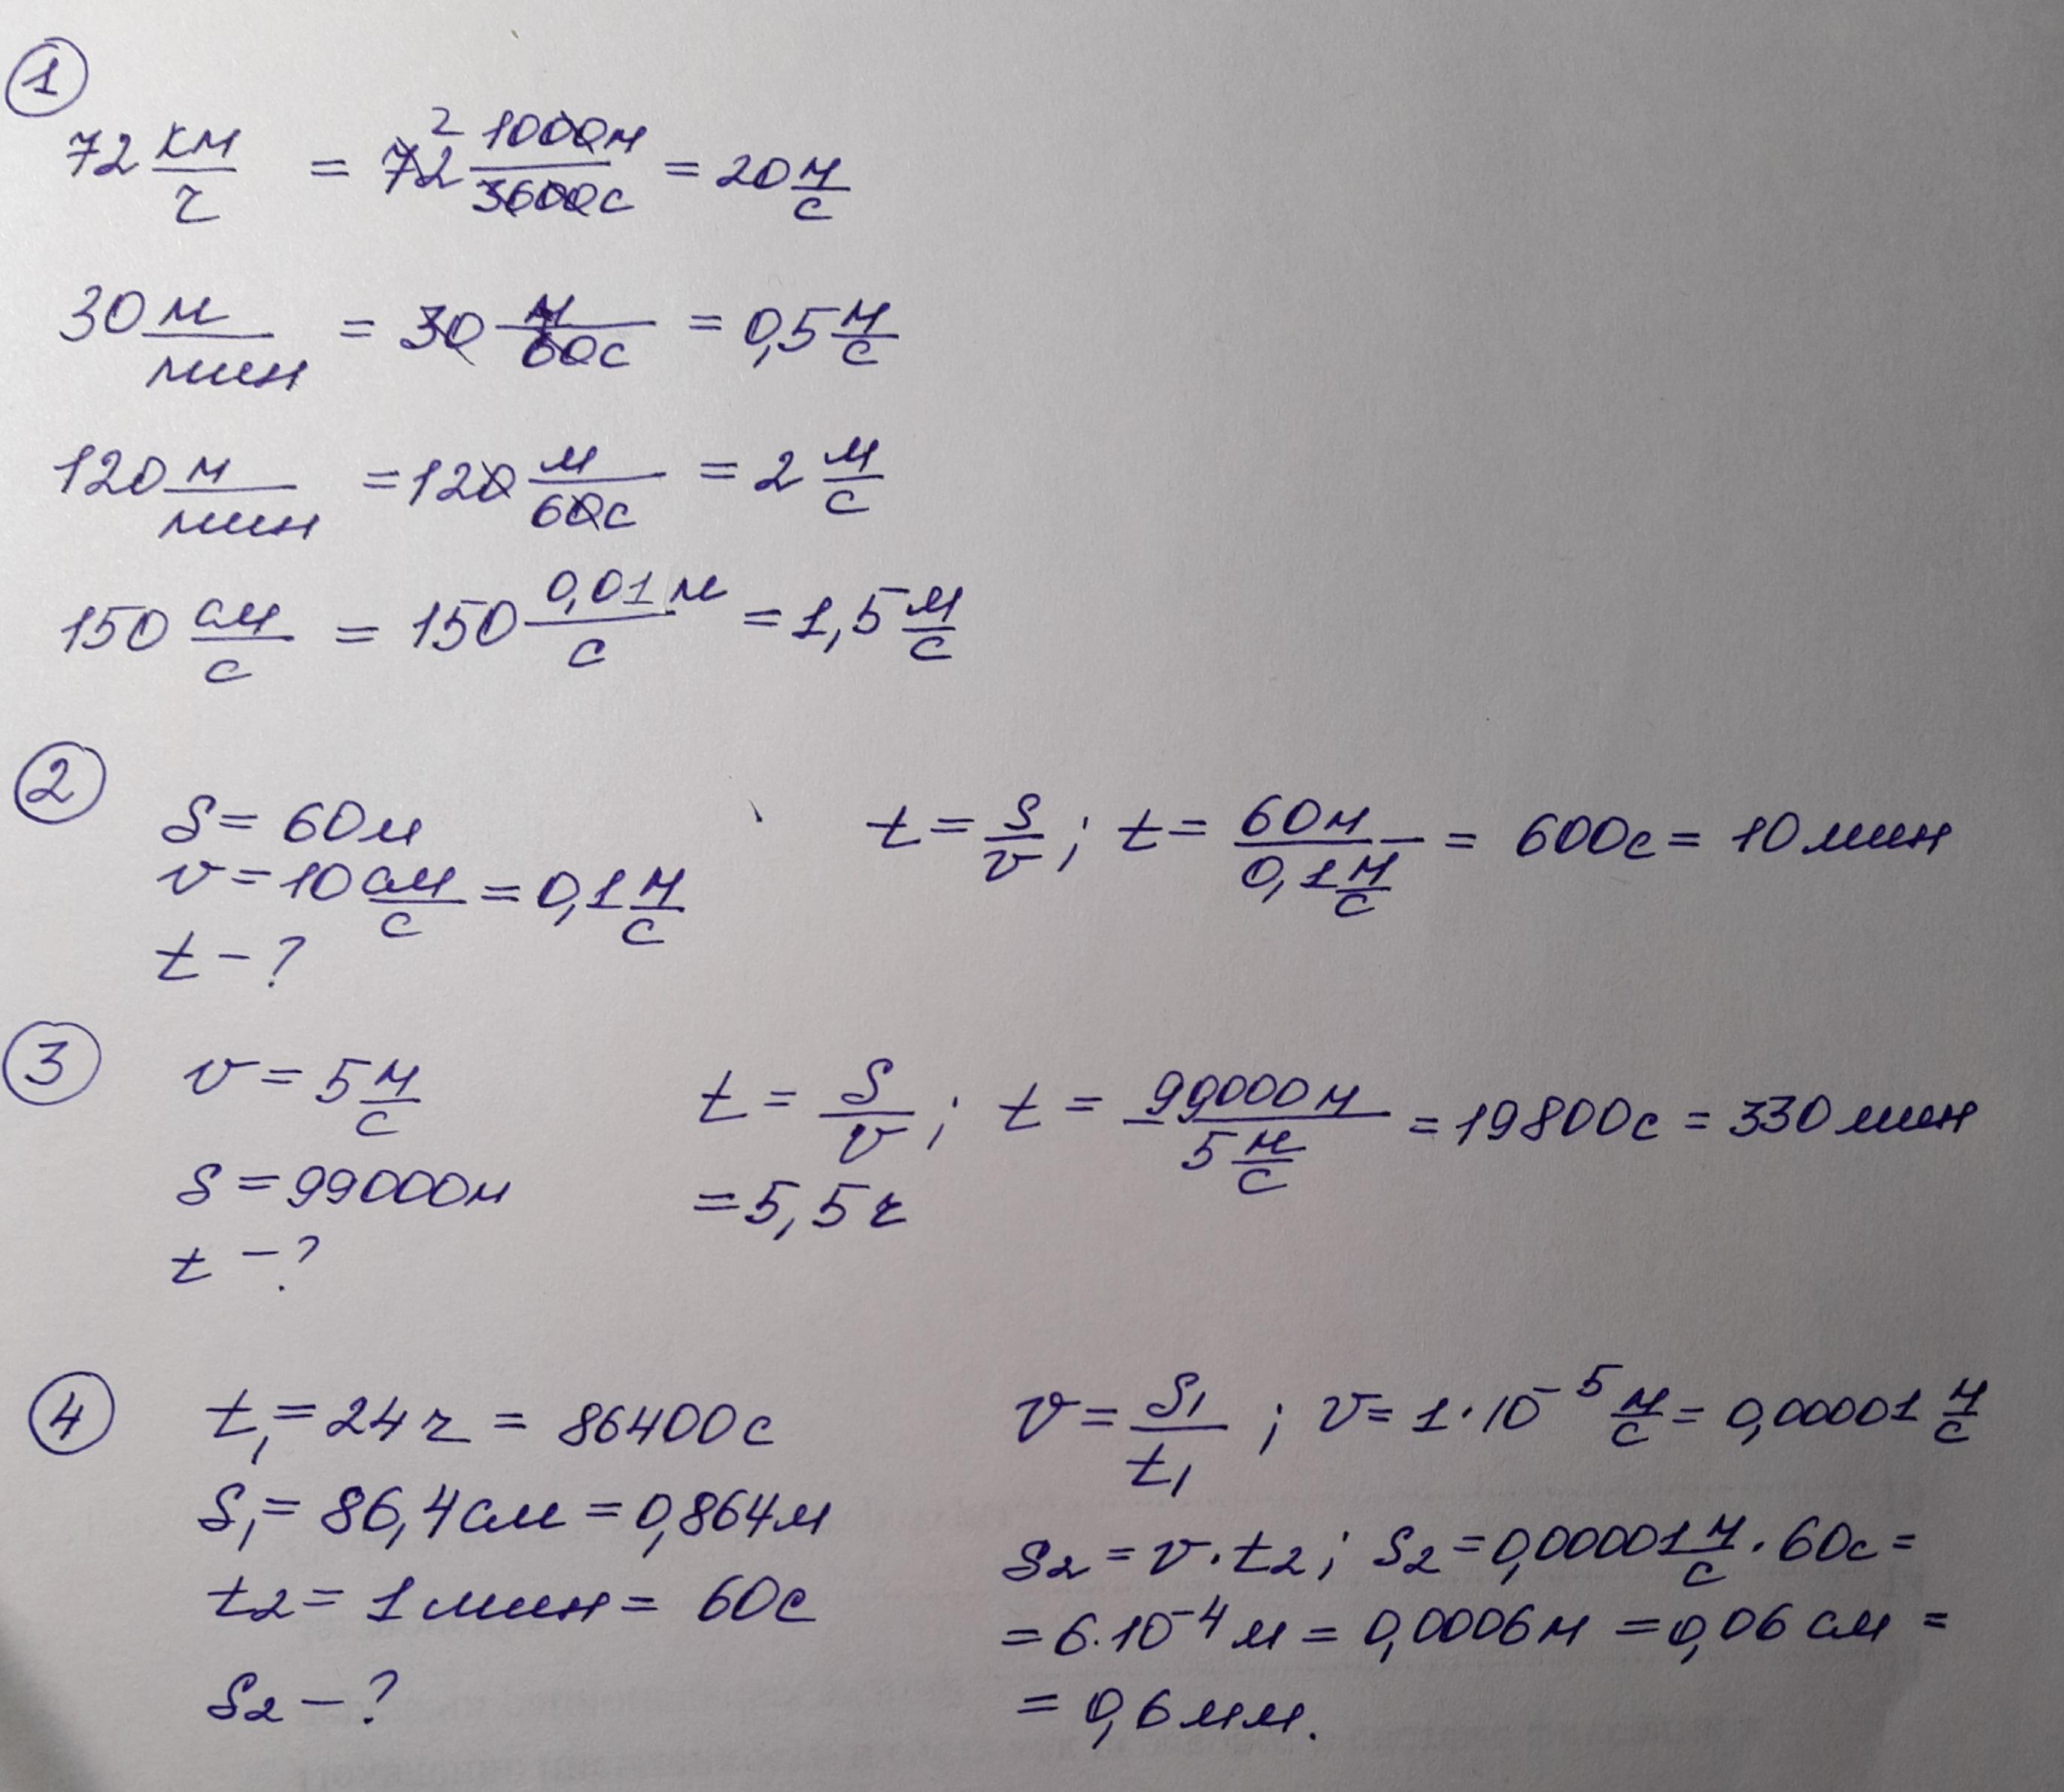 1
72 км/ч = 72 2 1000м/3600с = 20 м/с
30 м/мин = 30 м/60с = 0,5 м/с
120 м/мин = 120 м/60с = 2 м/с
150 см/с = 150 0,01м/с = 1,5 м/с
2
S = 60м
v = 10 см/с = 0,1 м/с
t - ?
t = S/v ; t = 60м/0,1 м/с = 600с = 10 мин
3
v = 5 м/с
S = 99000м
t - ?
t = S/v ; t = 99000м/5 м/с = 19800с = 330 мин
= 5,5 ч
4
t₁ = 24 ч = 86400с
S₁ = 86,4 см = 0,864м
t₂ = 1 мин = 60с
S₂ - ?
v = S₁/t₁ ; v = 1·10⁻⁵ м/с = 0,00001 м/с
S₂ = v·t₂ ; S₂ = 0,00001 м/с · 60с =
= 6·10⁻⁴ м = 0,0006м = 0,06 см =
= 0,6 мм.